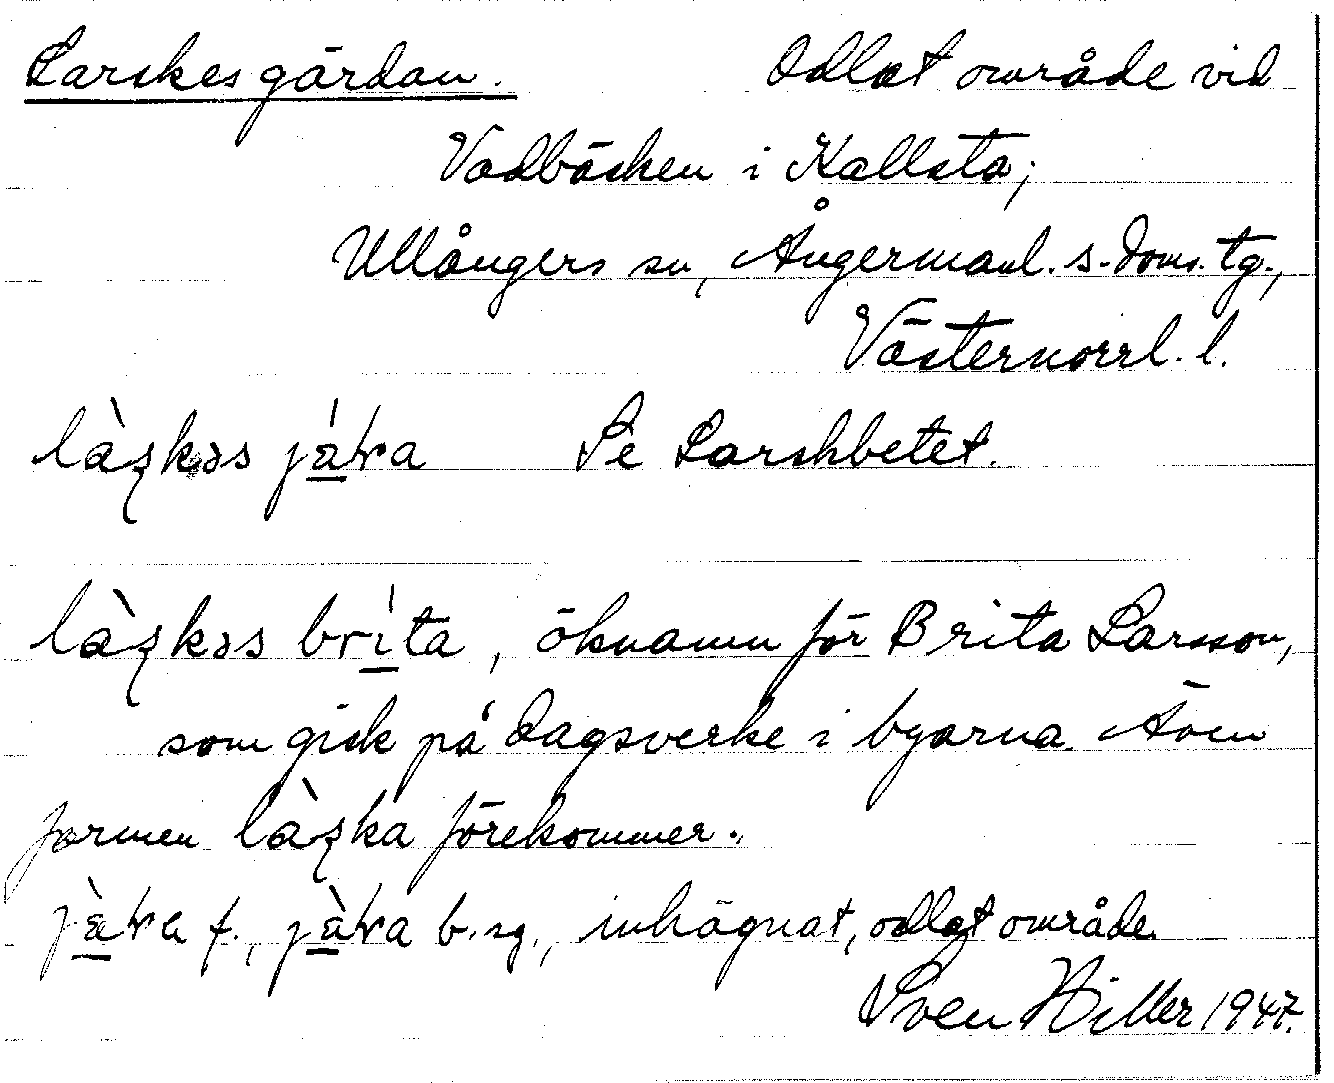 Larskesgärdan. Odlat område vid
Vadbäcken i Kallsta;
Ullångers sn, Ångermanl. s. doms. tg.,
Västernorrl. l.
Se Larshbetet.
brita, öknamn för Brita Larsson,
som gick på dagsverke i byarna. Även
formen förekommer.
f., b. sg., inhägnat, odlat område.
Sven Hiller 1947.